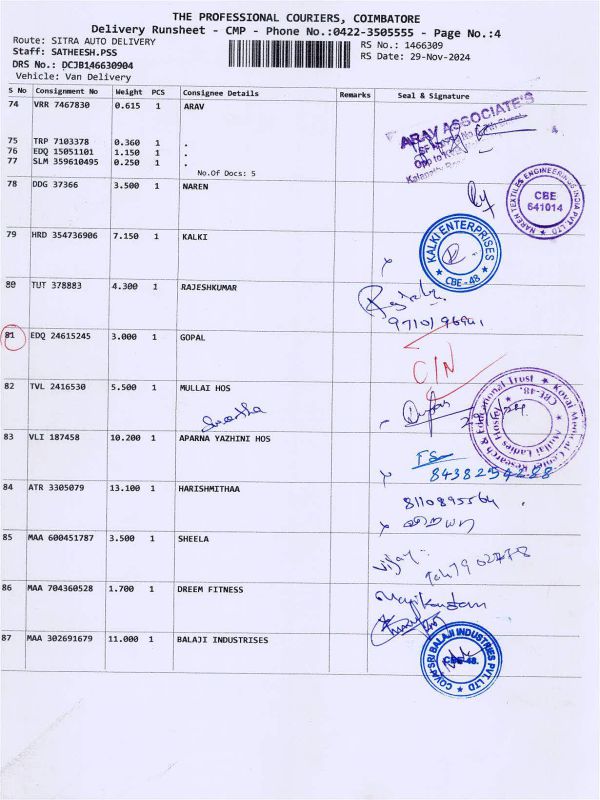 THE PROFESSIONAL COURIERS, COIMBATORE
Delivery Runsheet - CMP - Phone No.:0422-3505555 - Page No.:4
Route: SITRA AUTO DELIVERY RS No.: 1466309
Staff: SATHEESH.PSS RS Date: 29-Nov-2024
DRS No.: DCJB146630904
Vehicle: Van Delivery
S No Consignment No Weight PCS Consignee Details Remarks Seal & Signature
74 VRR 7467830 0.615 1 ARAV
ARAV ASSOCIATE'S
75 TRP 7103378 0.360 1 .
76 EDQ 15051101 1.150 1 .
77 SLM 359610495 0.250 1 .
No.Of Docs: 5
78 DDG 37366 3.500 1 NAREN
NAREN TEXTILES ENGINEERINGS INDIA PVT. LTD
CBE
641014
79 HRD 354736906 7.150 1 KALKI
KALKI ENTERPRISES
CBE-48
80 TUT 378883 4.300 1 RAJESHKUMAR
81 EDQ 24615245 3.000 1 GOPAL
C/N
82 TVL 2416530 5.500 1 MULLAI HOS
Kovai Medical Center Research & Educational Trust
Mullai Ladies Hostel
CBE-48.
83 VLI 187458 10.200 1 APARNA YAZHINI HOS
84 ATR 3305079 13.100 1 HARISHMITHAA
8110895564
85 MAA 600451787 3.500 1 SHEELA
Vijay
86 MAA 704360528 1.700 1 DREEM FITNESS
87 MAA 302691679 11.000 1 BALAJI INDUSTRISES
SRI BALAJI INDUSTRIES PVT. LTD
CBE-48.